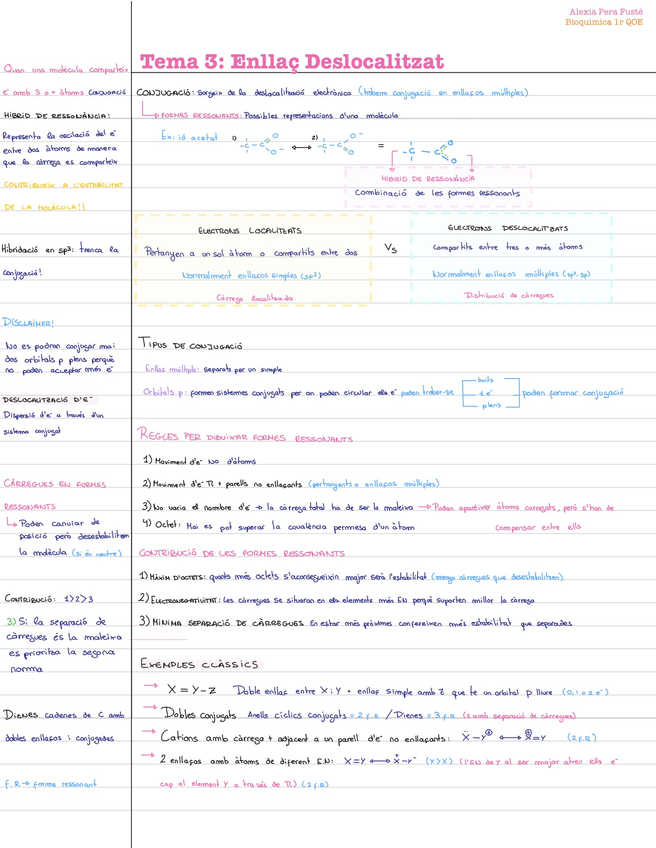 Alexia Pera Fusté
Bioquímica 1r QOE
Tema 3: Enllaç Deslocalitzat
Quan una molècula comparteix
e⁻ amb 3 o + àtoms CONJUGACIÓ
HÍBRID DE RESSONÀNCIA:
Representa la oscilació del e⁻
entre dos àtoms de manera
que la càrrega es comparteix
CONTRIBUEIX A L'ESTABILITAT
DE LA MOLÈCULA!!
Hibridació en sp³: trenca la
conjugació!
DISCLAIMER!
No es podran conjugar mai
dos orbitals p plens perquè
no poden acceptar més e⁻
DESLOCALITZACIÓ D'E⁻
Dispersió d'e⁻ a través d'un
sistema conjugat
CÀRREGUES EN FORMES
RESSONANTS
↳ Poden canviar de
posició però desestabilitzem
la molècula (si és neutre)
CONTRIBUCIÓ: 1>2>3
3) Si la separació de
càrregues és la mateixa
es prioritza la segona
norma
DIENES cadenes de C amb
dobles enllaços i conjugades
F.R → forma ressonant
CONJUGACIÓ: Sorgeix de la deslocalització electrònica (trobem conjugació en enllaços múltiples)
↳ FORMES RESSONANTS: Possibles representacions d'una molècula
Ex: ió acetat 1) -C-C O O⁻ ⟷ 2) -C-C O⁻ O = -C-C O O
HÍBRID DE RESSONÀNCIA
Combinació de les formes ressonants
ELECTRONS LOCALITZATS
Pertanyen a un sol àtom o compartits entre dos
Normalment enllaços simples (sp³)
Càrrega localitzada
Vs
ELECTRONS DESLOCALITZATS
Compartits entre tres o més àtoms
Normalment enllaços múltiples (sp², sp)
Distribució de càrregues
TIPUS DE CONJUGACIÓ
Enllaç múltiple: separats per un simple
Orbitals p: formen sistemes conjugats per on poden circular els e⁻ poden trobar-se
buits
1 e⁻
plens
poden formar conjugació
REGLES PER DIBUIXAR FORMES RESSONANTS
1) Moviment d'e⁻ NO d'àtoms
2) Moviment d'e⁻ π + parells no enllaçants (pertanyents a enllaços múltiples)
3) No varia el nombre d'e⁻ → la càrrega total ha de ser la mateixa → Poden aparèixer àtoms carregats, però s'han de
compensar entre ells
4) Octet: Mai es pot superar la covalència permesa d'un àtom
CONTRIBUCIÓ DE LES FORMES RESSONANTS
1) MÀXIM D'OCTETS: quants més octets s'aconsegueixin major serà l'estabilitat (menys càrregues que desestabilitzen)
2) ELECTRONEGATIVITAT: Les càrregues se situaran en els elements més EN perquè suporten millor la càrrega
3) MÍNIMA SEPARACIÓ DE CÀRREGUES En estar més pròximes confereixen més estabilitat que separades
EXEMPLES CLÀSSICS
→ X = Y - Z Doble enllaç entre X i Y + enllaç simple amb Z que te un orbital p lliure (0, 1 o 2 e⁻)
→ Dobles conjugats Anells cíclics conjugats = 2 f.r / Dienes = 3 f.r (2 amb separació de càrregues)
→ Cations amb càrrega + adjacent a un parell d'e⁻ no enllaçants: Ẍ-Y⊕ ⟷ X⊕=Y (2 f.R)
→ 2 enllaços amb àtoms de diferent E.N: X=Y ⟷ X⁺-Y⁻ (Y>X) (l'EN de Y al ser major atreu els e⁻
cap al element Y a través de π) (2 f.R)